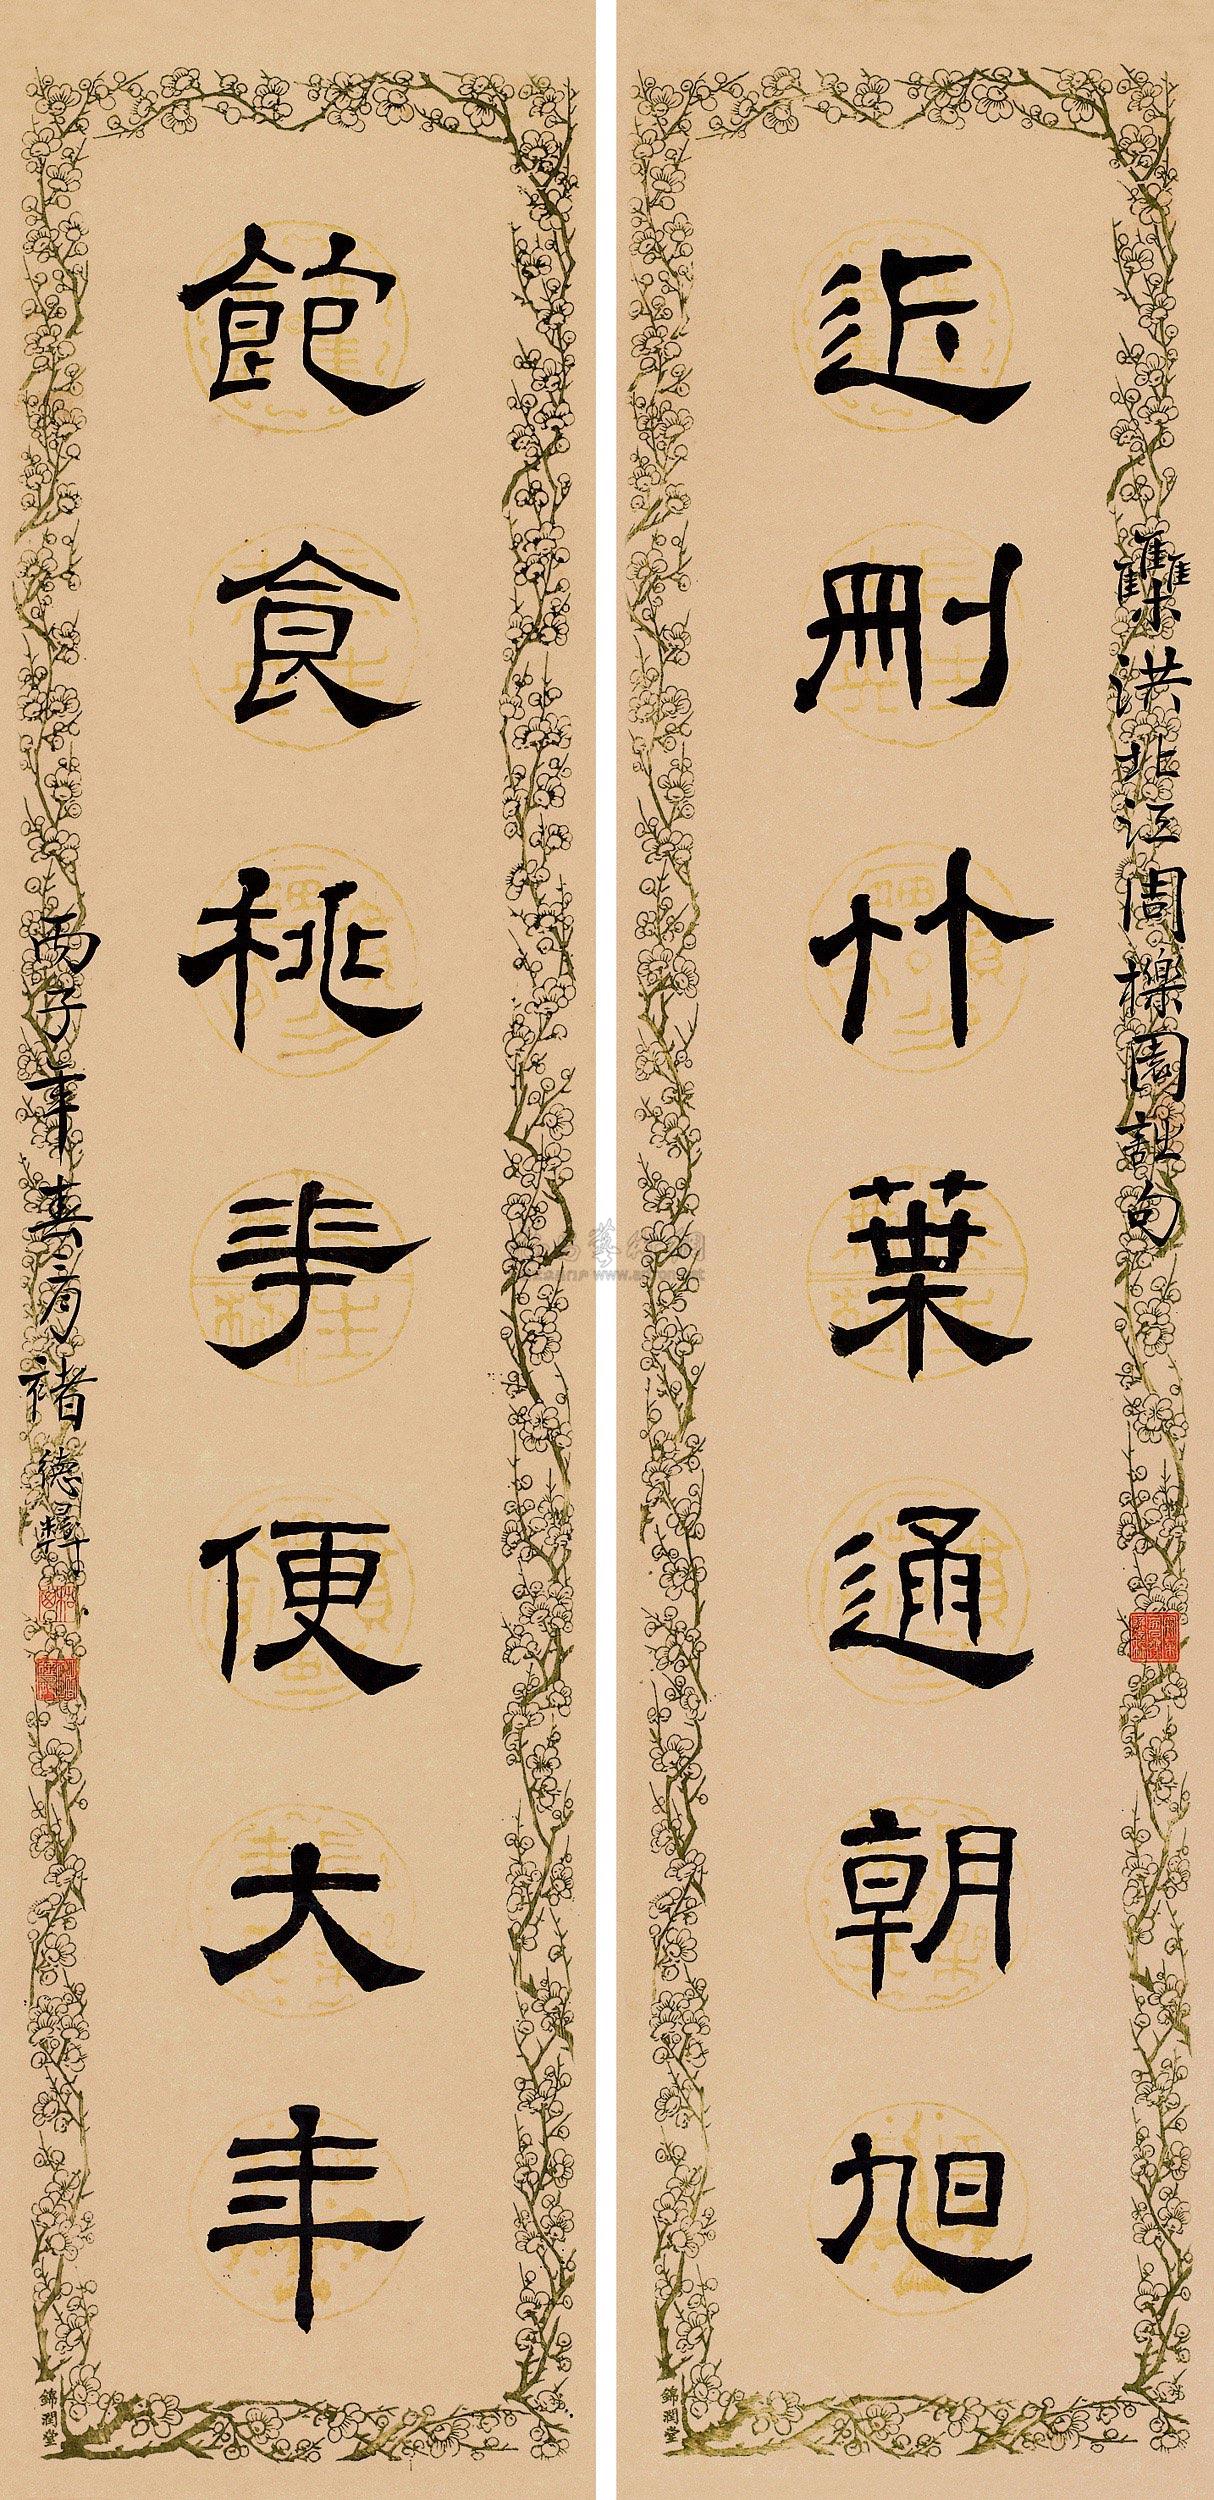 集洪北江周櫟園詿句
近刪竹葉通朝旭
飽食桃華便大年
丙子年春三月褚德彝
錦潤堂
錦潤堂